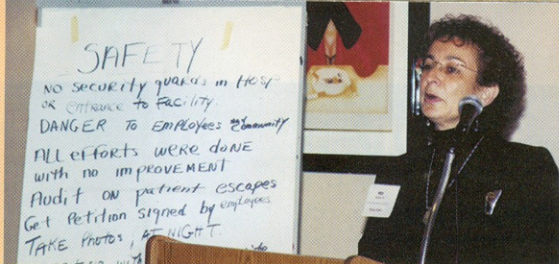 SAFETY
NO SECURITY guards in Hosp
OR entrance to Facility.
DANGER TO EMPLOYEES and community
ALL efforts were done
with no improvement
Audit on patient escapes
Get Petition signed by employees
TAKE Photos, AT NIGHT.